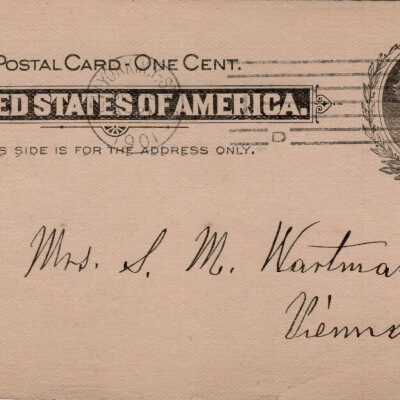 POSTAL CARD - ONE CENT.
ED STATES OF AMERICA.
S SIDE IS FOR THE ADDRESS ONLY.
1901
D
Mrs. S. M. Wartma
Vienna